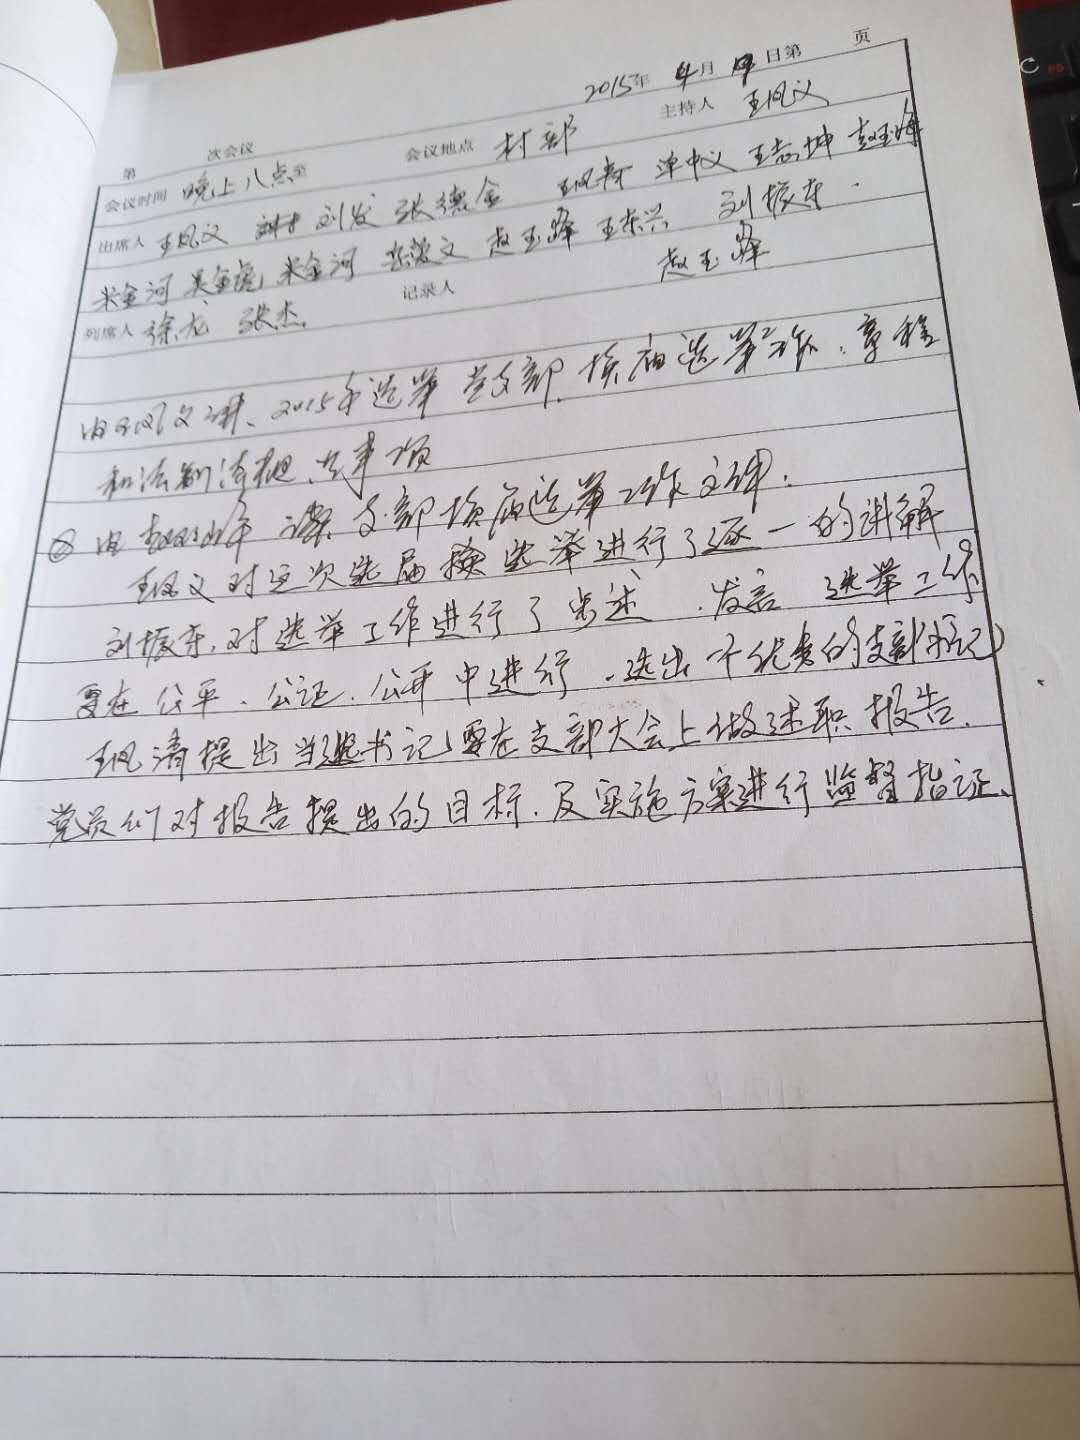 2015年 4月 日第 页
第 次会议 会议地点 村部 主持人 王凤义
会议时间 晚上八点至
出席人 王凤义 刘发 张德金 单中义 王志坤 赵玉峰
米金河 吴金虎 米金河 赵玉峰 王东兴 刘振东
列席人 徐龙 张杰 记录人 赵玉峰
由王凤义讲、2015年选举党支部、换届选举工作、章程
和法制
② 由赵玉峰读支部换届选举工作文件.
王凤义对这次选届换选举进行了逐一的讲解
刘振东,对选举工作进行了 述、发言 选举工作
要在公平、公证、公开中进行、选出个优秀的支部书记
王凤清提出当选书记要在支部大会上做述职报告.
党员们对报告提出的目标、及实施方案进行监督指证、